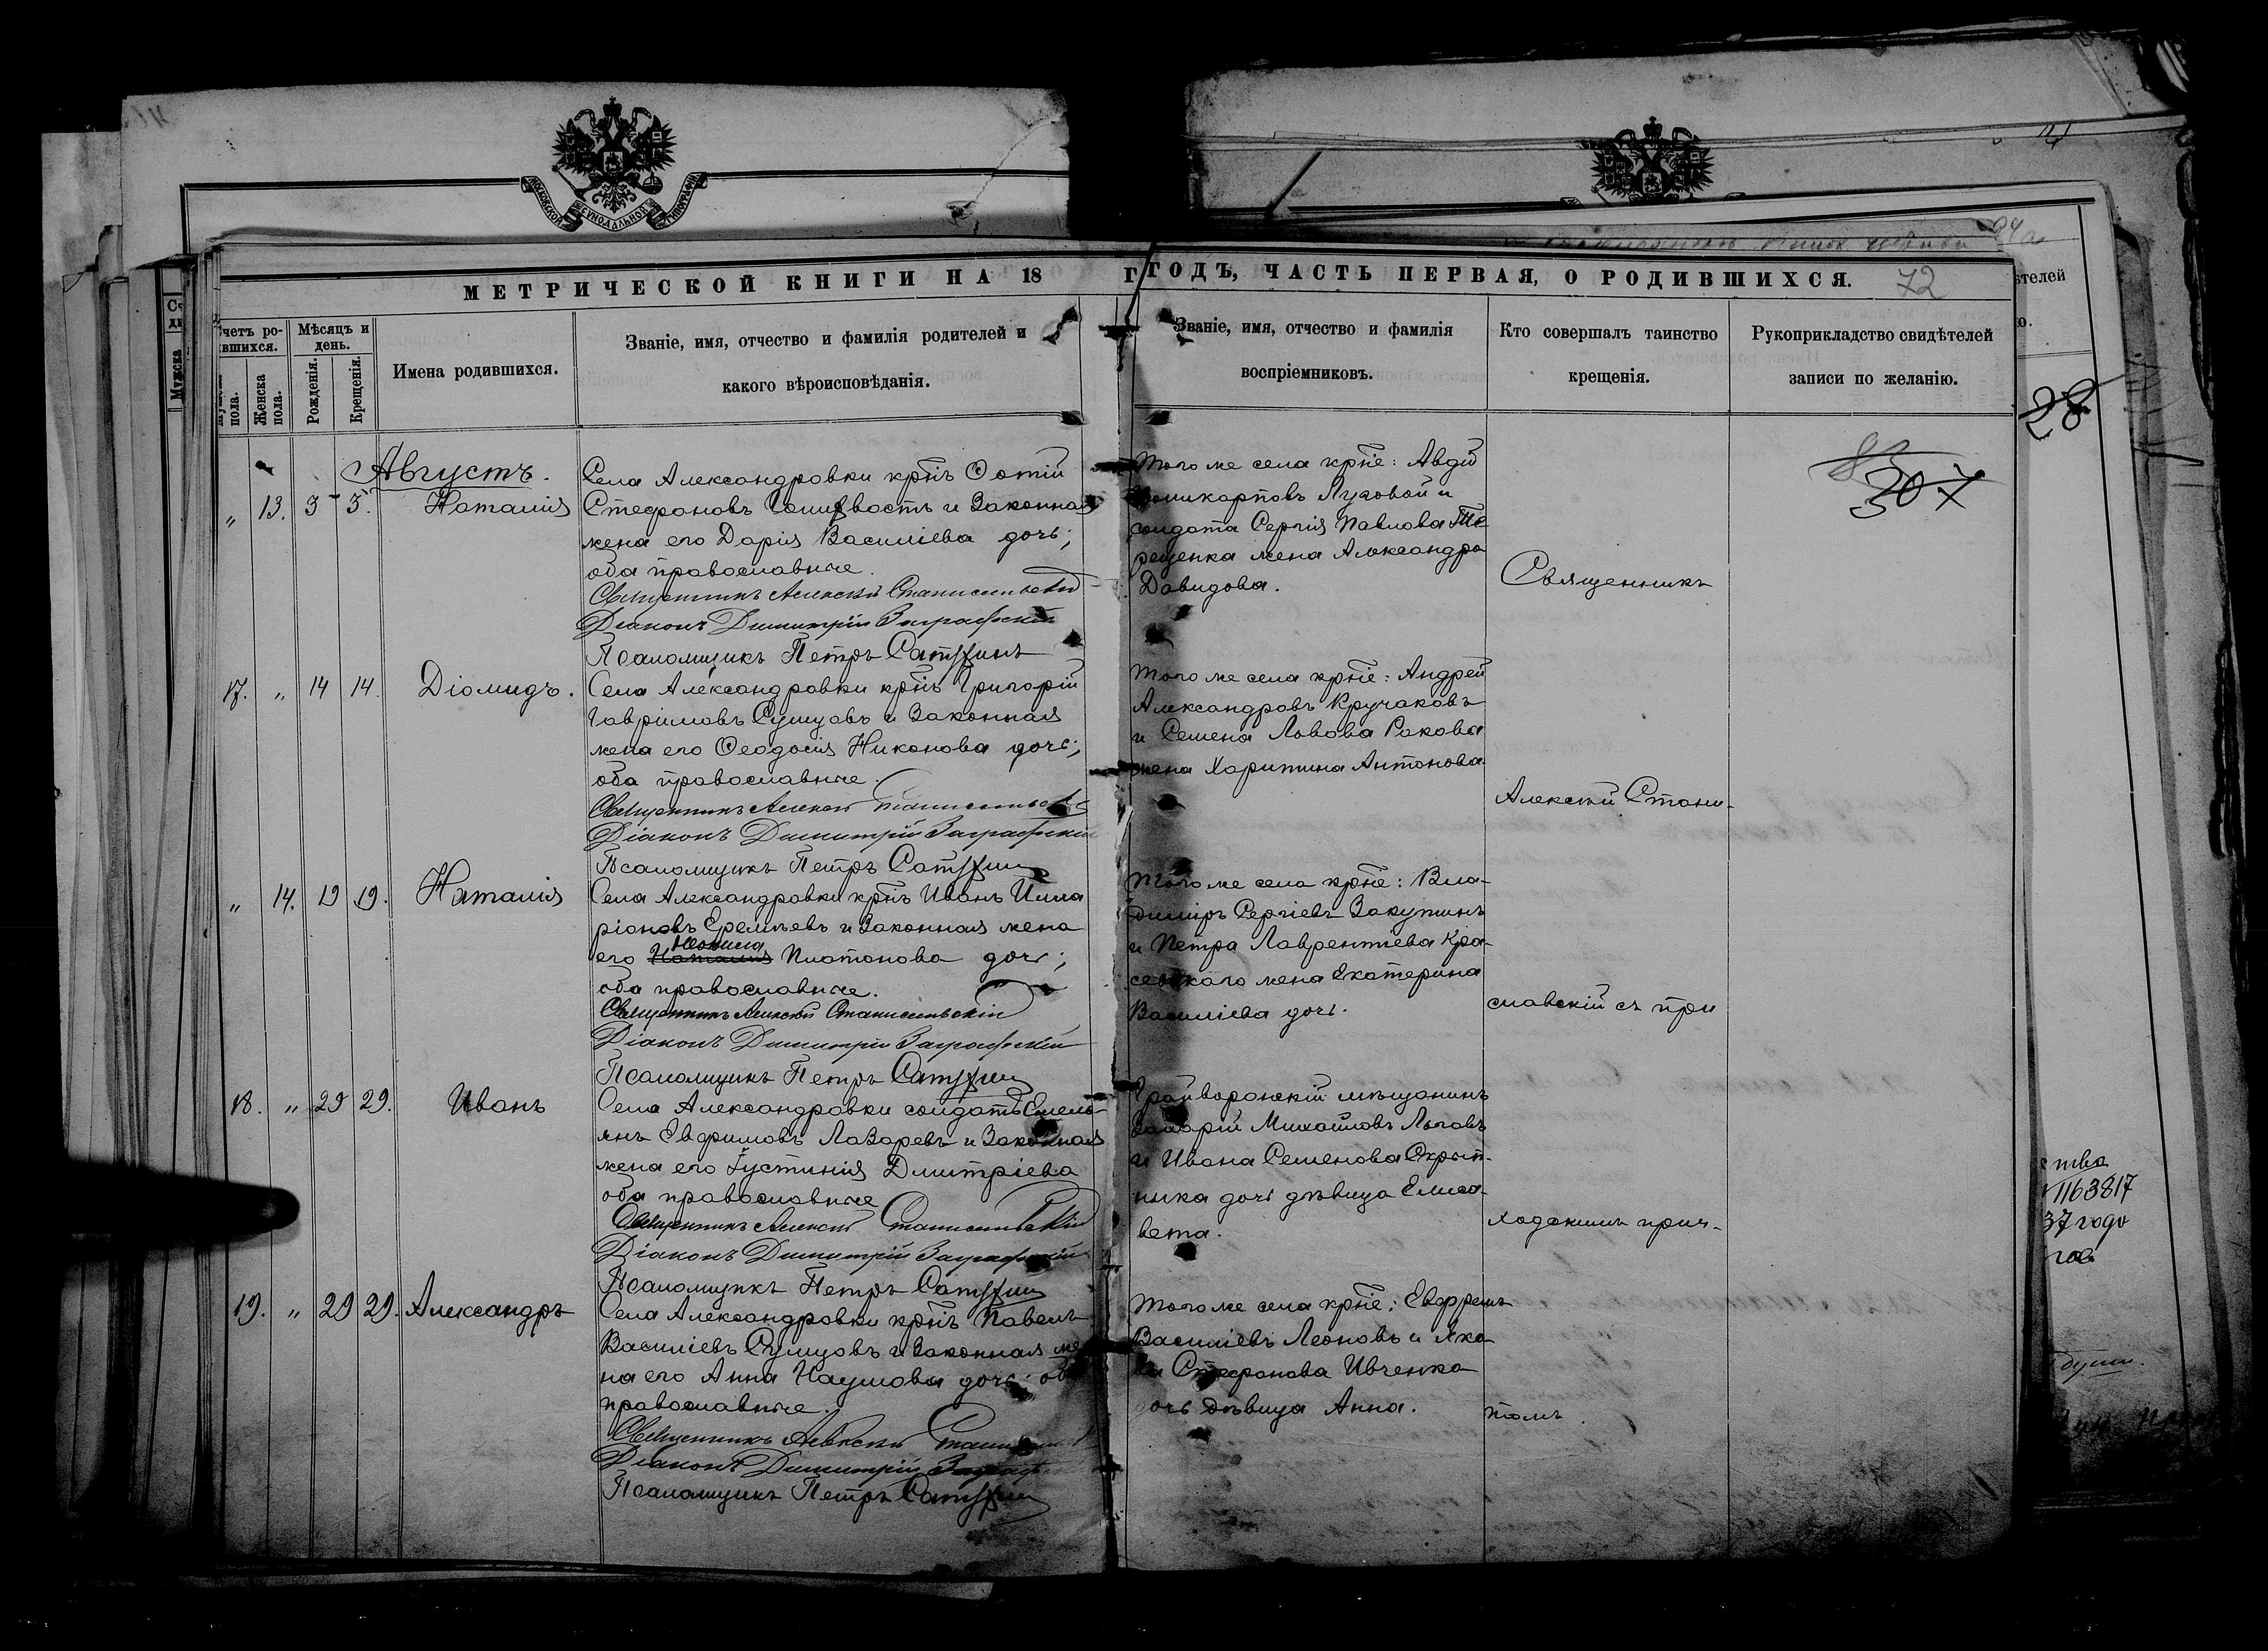 МОСКОВСКОЙ СУНОДАЛЬНОЙ ТИПОГРАФІИ
МЕТРИЧЕСКОЙ КНИГИ НА 18 ГОДЪ, ЧАСТЬ ПЕРВАЯ, О РОДИВШИХСЯ.
72
Счетъ ро-
дившихся.
Мѣсяцъ и
день.
Женска
пола.
Рожденія.
Крещенія.
Имена родившихся.
Званіе, имя, отчество и фамилія родителей и
какого вѣроисповѣданія.
Званіе, имя, отчество и фамилія
воспріемниковъ.
Кто совершалъ таинство
крещенія.
Рукоприкладство свидѣтелей
записи по желанію.
28
307
Августъ.
„ 13. 3 3. Наталія
Села Александровки кр̃нъ Фотій
Стефановъ и законная
жена его Дарія Василіева дочь;
оба православные.
Священникъ Алексій Станиславскій
Діаконъ Димитрій Заграфскій
Псаломщикъ Петръ Сатунинъ
Того же села кр̃не: Авдій
Поликарповъ Луговой и
солдата Сергія Павлова Те
рещенка жена Александра
Давидова.
Священникъ
17. „ 14 14. Діомидъ.
Села Александровки кр̃нъ Григорій
Гавріиловъ Сумцовъ и законная
жена его Феодосія Никонова дочь;
оба православные.
Священникъ Алексій Станиславскій
Діаконъ Димитрій Заграфскій
Псаломщикъ Петръ Сатунинъ
Того же села кр̃не: Андрей
Александровъ Кручаковъ
и Семена Львова Ракова
жена Харитина Антонова
Алексій Стани-
„ 14. 19 19. Наталія
Села Александровки кр̃нъ Иванъ Илла
ріоновъ Еремѣевъ и законная жена
Неонила
его Наталія Платонова дочь;
оба православные.
Священникъ Алексій Станиславскій
Діаконъ Димитрій Заграфскій
Псаломщикъ Петръ Сатунинъ
Того же села кр̃не: Вла-
диміръ Сергіевъ Закутинъ
и Петра Лаврентіева Кра-
жена Екатерина
Василіева дочь.
славскій съ при
18. „ 29 29. Иванъ
Села Александровки солдатъ Емель-
янъ Евфимовъ Лазаревъ и законная
жена его Іустинія Дмитріева
оба православные
Священникъ Алексій Станиславскій
Діаконъ Димитрій Заграфскій
Псаломщикъ Петръ Сатунинъ
Грайворонскій мѣщанинъ
Михаиловъ Льговъ
и Ивана Семенова Скрып-
ника дочь дѣвица Елиса-
вета.
ходскимъ прич-
19. „ 29 29. Александръ
Села Александровки кр̃нъ Павелъ
Василіевъ Сумцовъ и законная же
на его Анна Наумова дочь; оба
православные.
Священникъ Алексій
Діаконъ Димитрій
Псаломщикъ Петръ Сатунинъ
Того же села кр̃не: Евфремъ
Василіевъ Леоновъ и Яко
ва Стефанова Ивченка
дочь дѣвица Анна.
томъ.
1163817
37 года